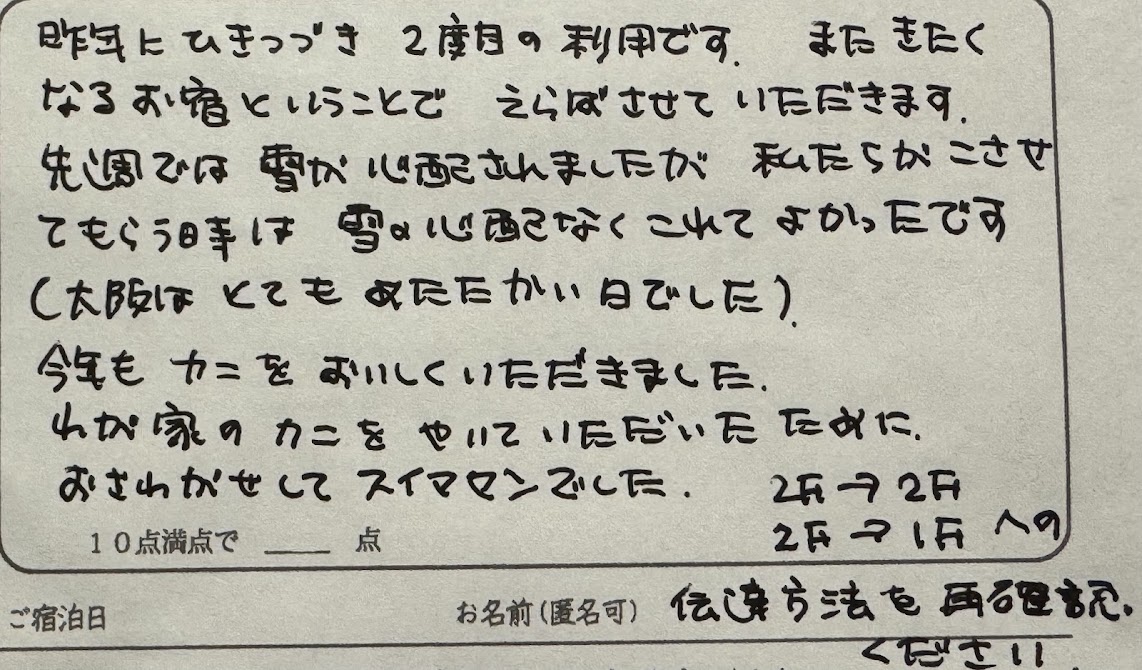 昨年にひきつづき 2度目の利用です. またきたく
なるお宿ということで えらばさせていただきます.
先週では 雪が心配されましたが 私たちがこさせ
てもらう時は 雪の心配なくこれてよかったです
(大阪はとてもあたたかい日でした).
今年も カニをおいしくいただきました.
わが家のカニを やいていただいたために.
おさわがせして スイマセンでした. 2F→2F
10点満点で ____ 点 2F→1Fへの
ご宿泊日 お名前(匿名可) 伝達方法を再確認.
ください